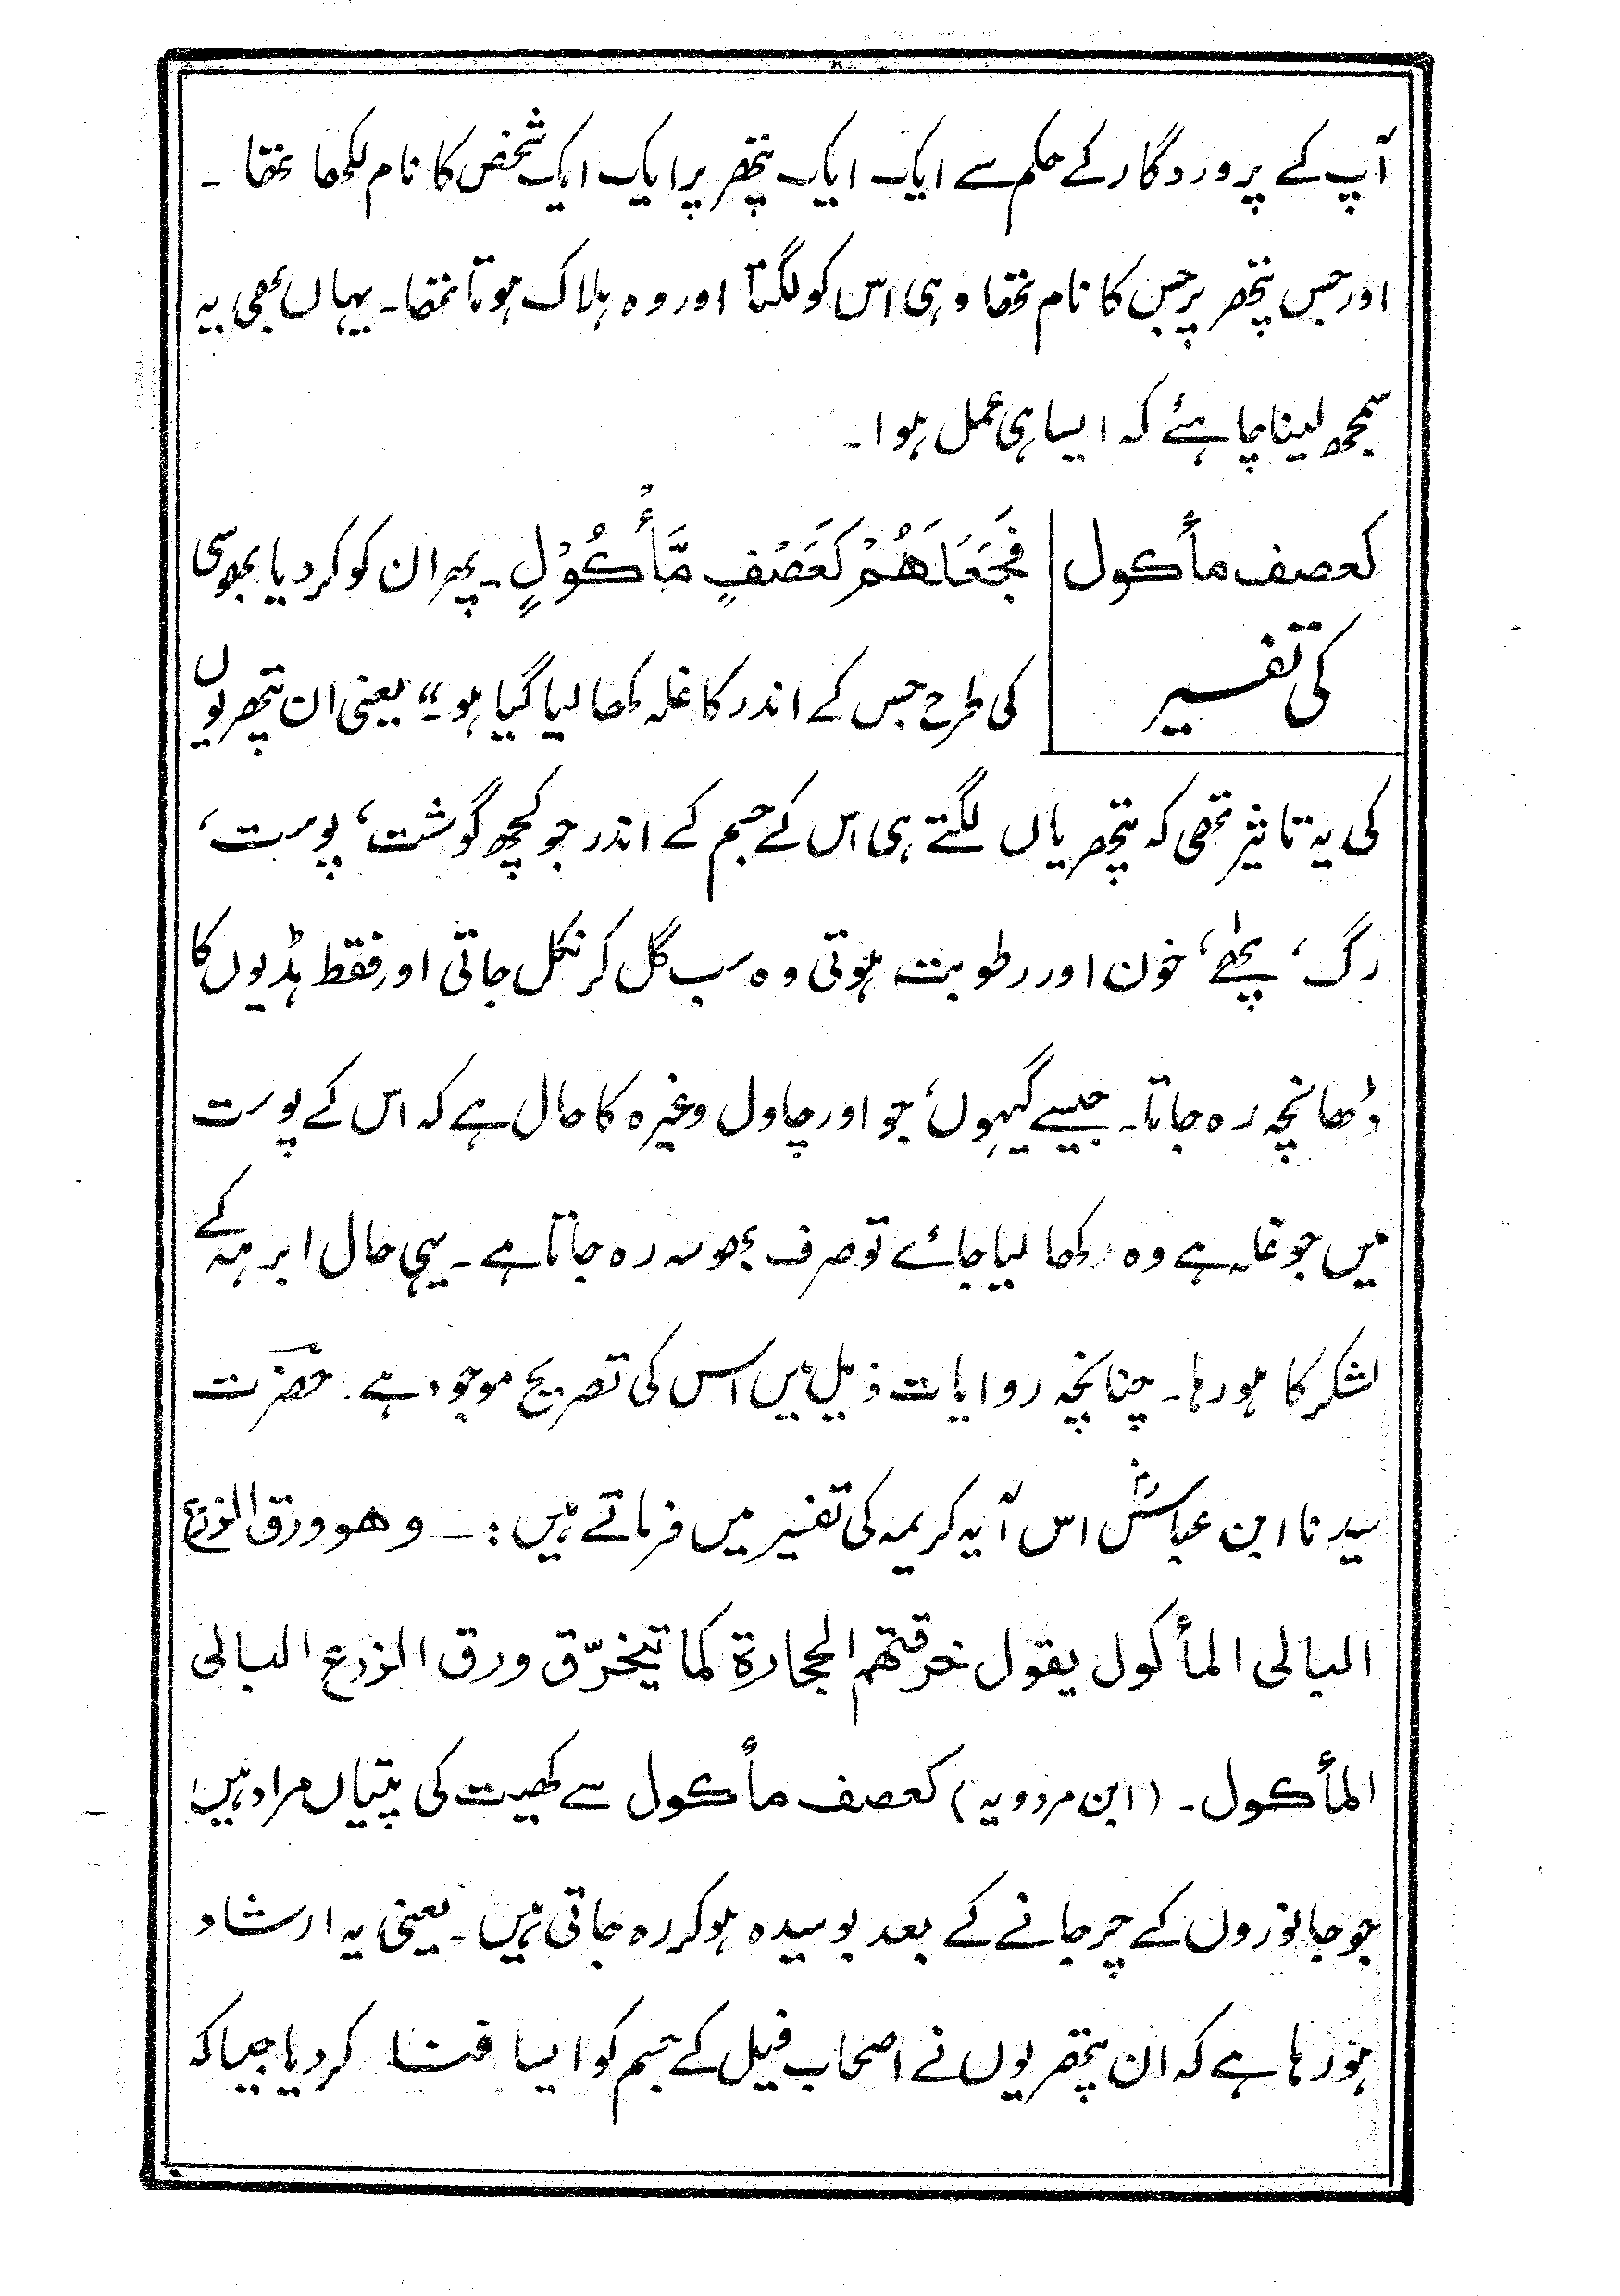 آپ کے پروردگار کے حکم سے ایک ایک پتھر پر ایک ایک شخص کا نام لکھا تھا ۔
اور جس پتھر پر جس کا نام تھا وہی اس کو لگتا اور وہ ہلاک ہوتا تھا ۔ یہاں بھی یہ
سمجھ لینا چاہئے کہ ایسا ہی عمل ہوا ۔
کعصف مأکول
کی تفسیر
فَجَعَلَهُمْ كَعَصْفٍ مَّأْكُوْلٍ ۔ پھر ان کو کر دیا بھوسی
کی طرح جس کے اندر کا غلہ کھا لیا گیا ہو ۔“ یعنی ان پتھریوں
کی یہ تاثیر تھی کہ پتھریاں لگتے ہی اس کے جسم کے اندر جو کچھ گوشت ، پوست ،
رگ ، پٹھے ، خون اور رطوبت ہوتی وہ سب گل کر نکل جاتی اور فقط ہڈیوں کا
ڈھانچہ رہ جاتا ۔ جیسے گیہوں ، جو اور چاول وغیرہ کا حال ہے کہ اس کے پوست
میں جو غلہ ہے وہ کھا لیا جائے تو صرف بھوسہ رہ جاتا ہے ۔ یہی حال ابرہہ کے
لشکر کا ہو رہا ۔ چنانچہ روایات ذیل میں اس کی تصریح موجود ہے ۔ حضرت
سیدنا ابن عباسؓ اس آیہ کریمہ کی تفسیر میں فرماتے ہیں :ــ وهو ورق الزرع
البالی المأکول یقول خرقتهم الحجارة کما یتخرّق ورق الزرع البالی
المأکول ۔ (ابن مردویہ) کعصف مأکول سے کھیت کی پتیاں مراد ہیں
جو جانوروں کے چر جانے کے بعد بوسیدہ ہو کر رہ جاتی ہیں ۔ یعنی یہ ارشاد
ہو رہا ہے کہ ان پتھریوں نے اصحاب فیل کے جسم کو ایسا فنا کر دیا جیسا کہ